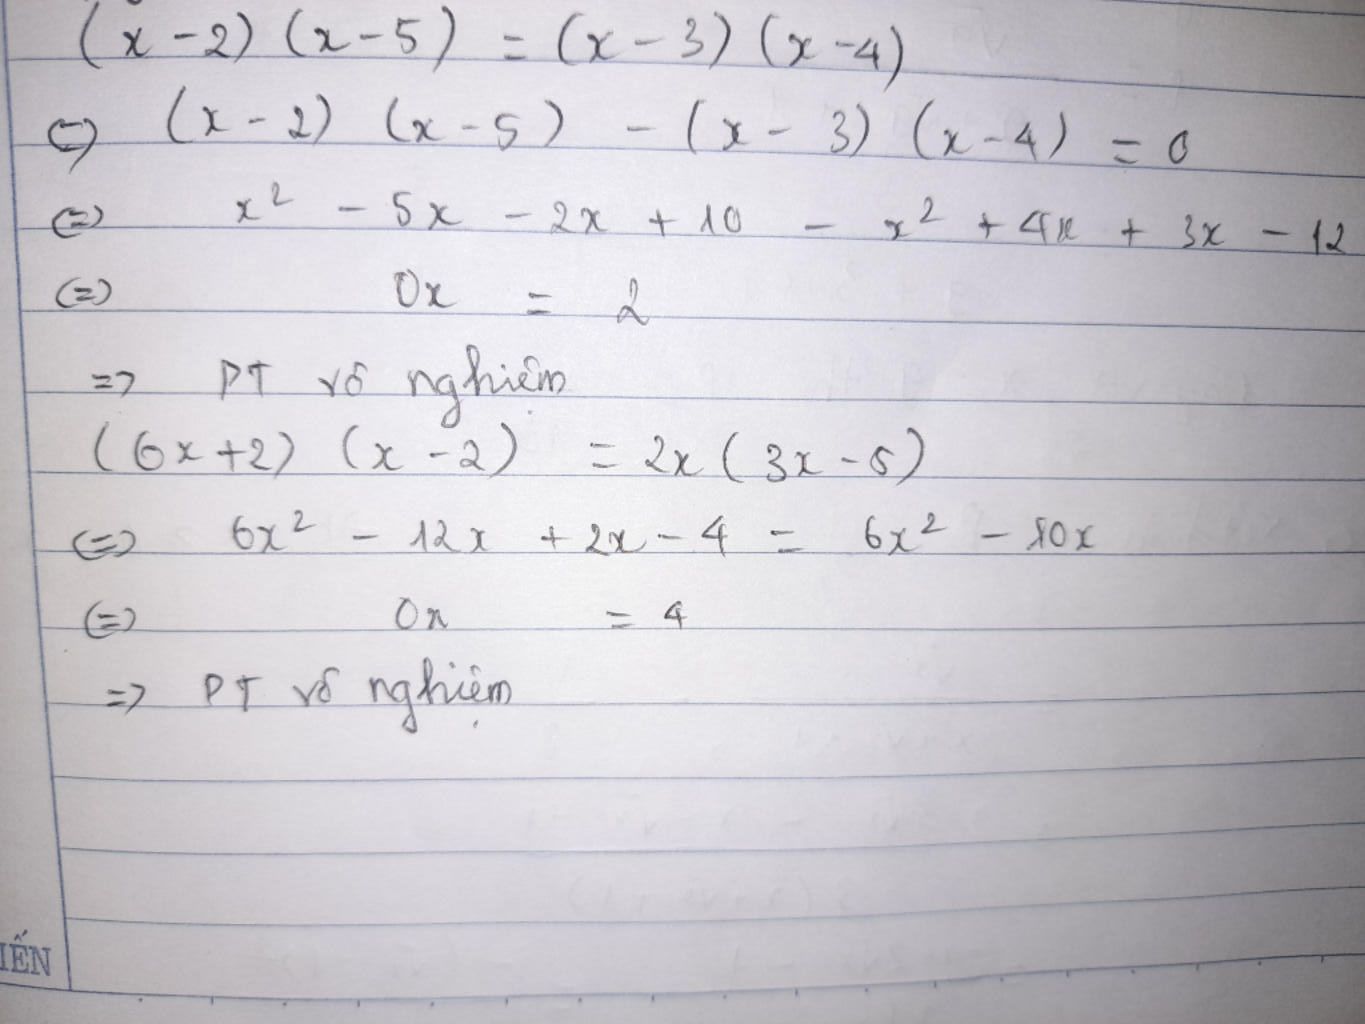 (x - 2) (x - 5) = (x - 3) (x - 4)
(=) (x - 2) (x - 5) - (x - 3) (x - 4) = 0
(=) x² - 5x - 2x + 10 - x² + 4x + 3x - 12
(=) 0x = 2
=> PT vô nghiệm
(6x + 2) (x - 2) = 2x (3x - 5)
(=) 6x² - 12x + 2x - 4 = 6x² - 10x
(=) 0x = 4
=> PT vô nghiệm
IẾN